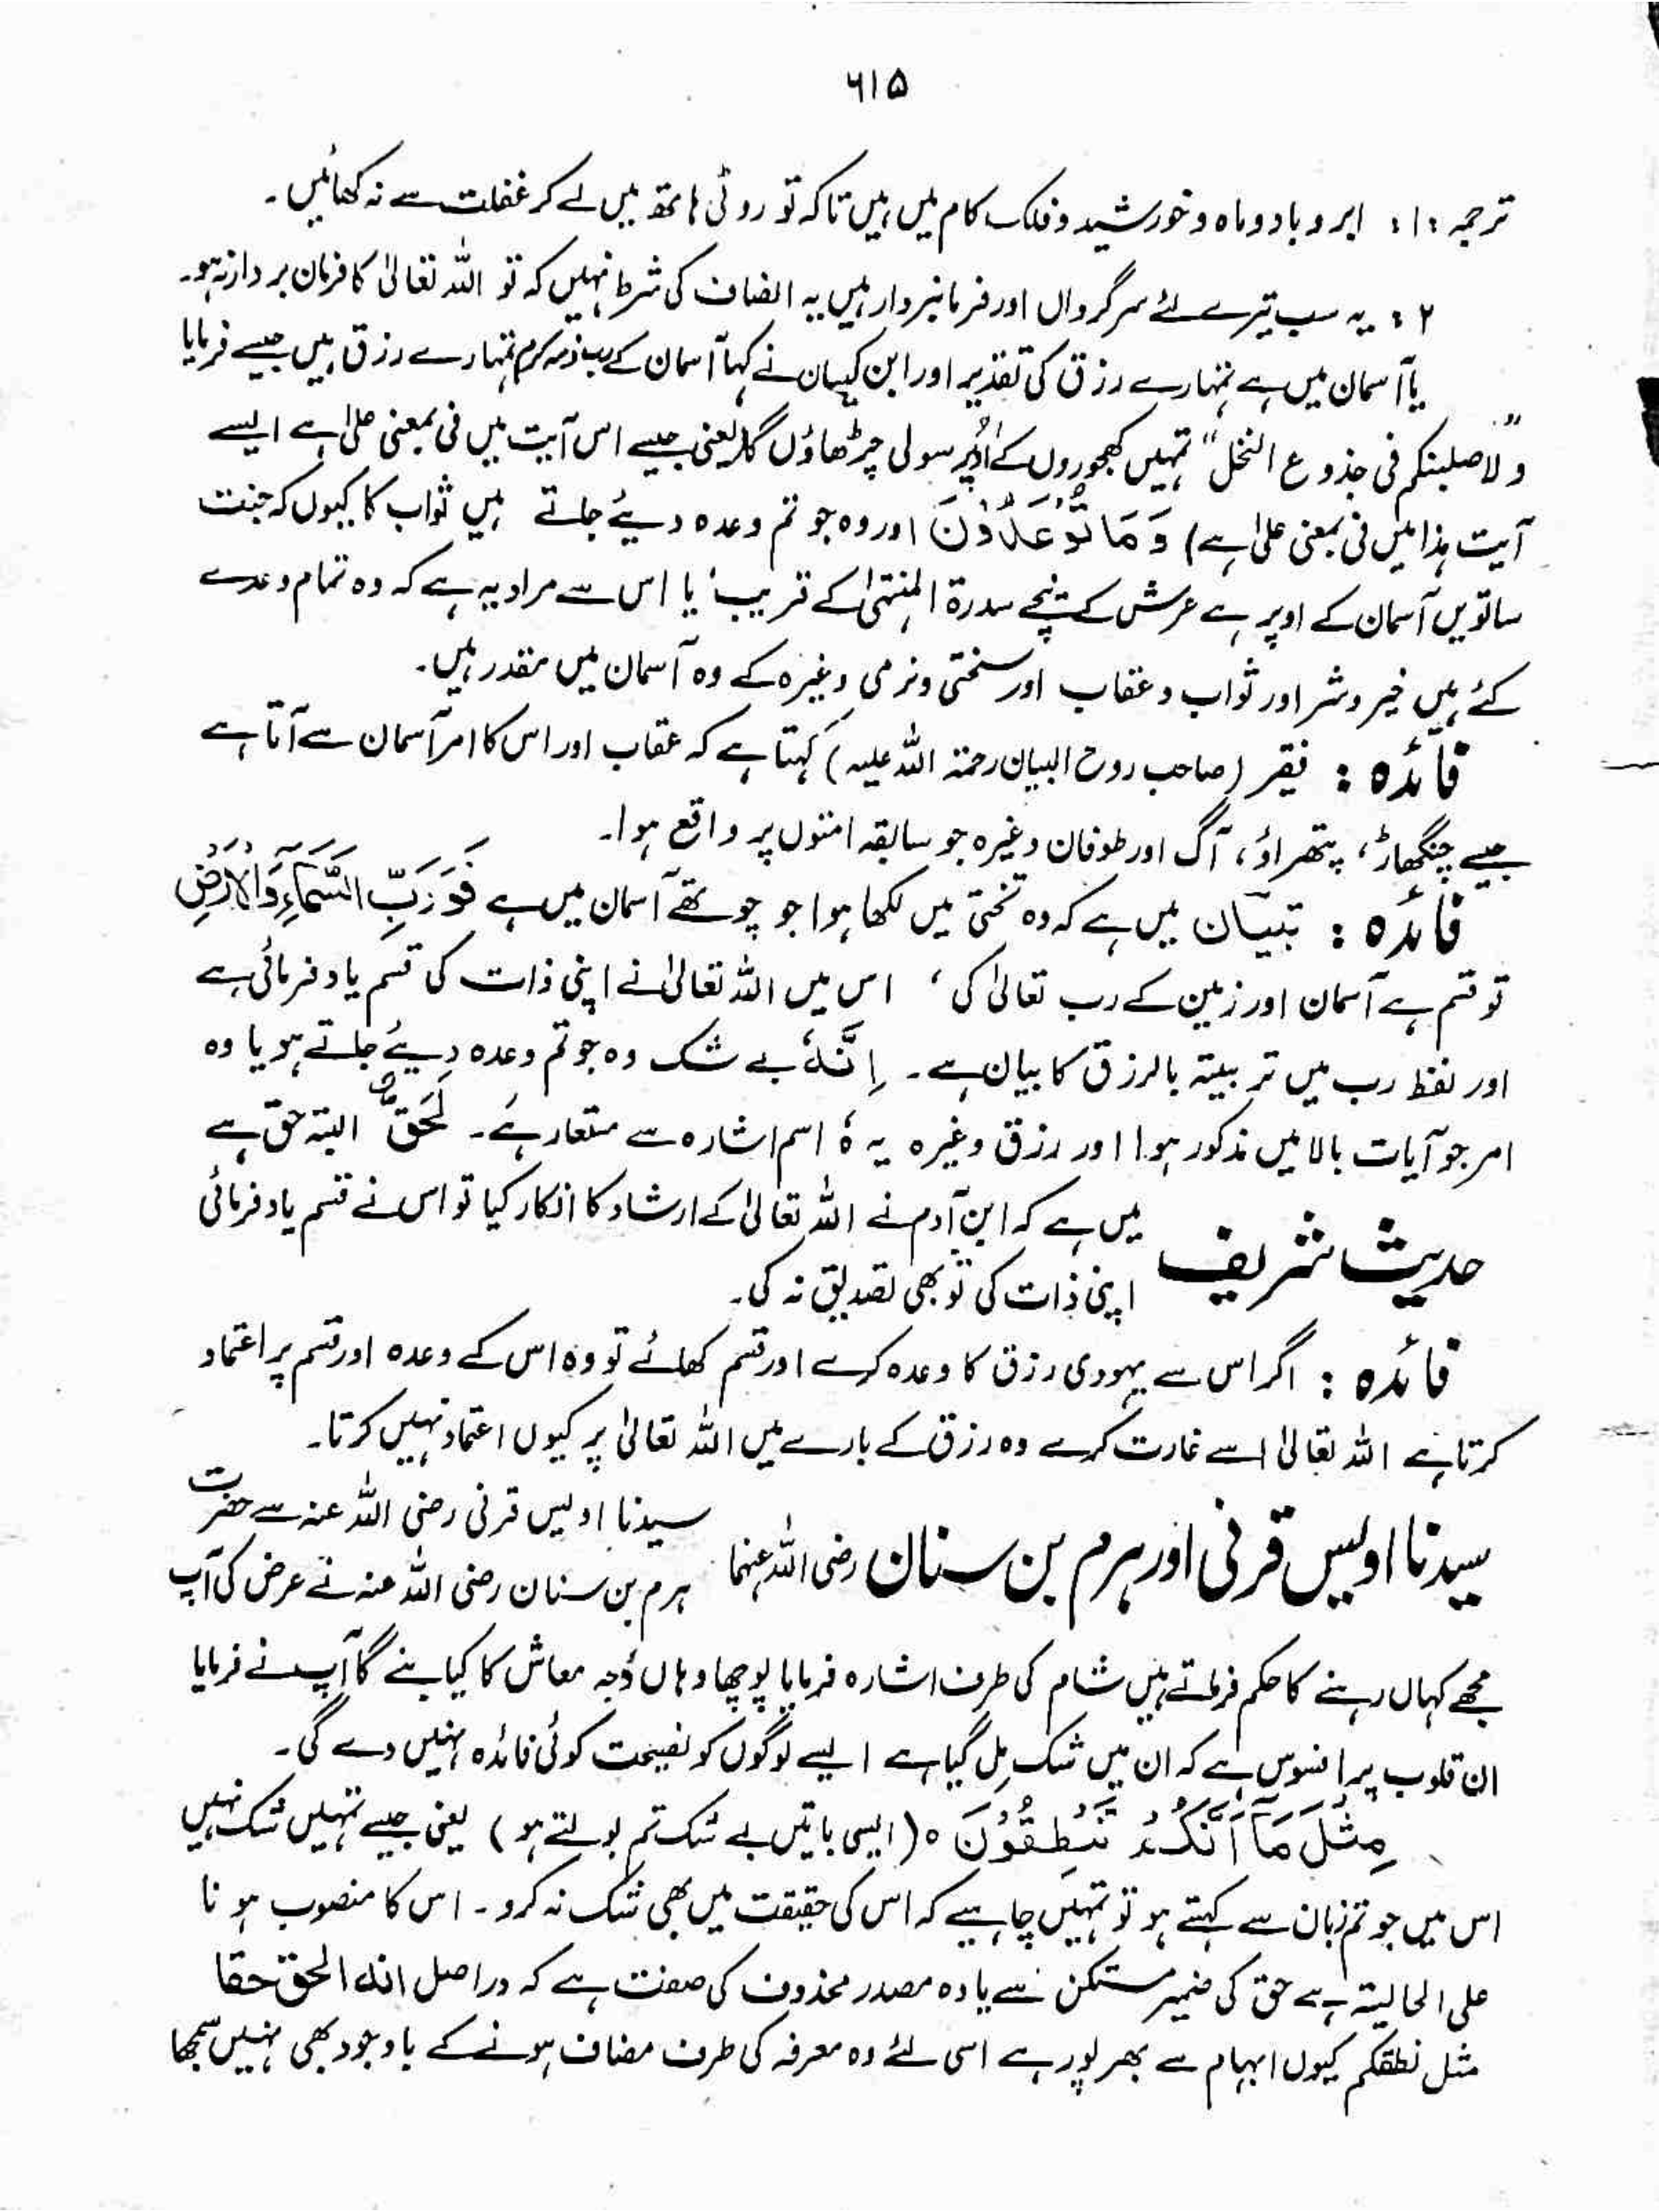 ۶۱۵
ترجمہ :۱: ابر و باد و ماہ و خورشید و فلک کام میں ہیں تاکہ تو روٹی ہاتھ میں لے کر غفلت سے نہ کھائیں ۔
۲ : یہ سب تیرے لئے سرگرداں اور فرمانبردار ہیں یہ انصاف کی شرط نہیں کہ تو اللہ تعالیٰ کا فرمان بردار نہ ہو۔
یا آسمان میں ہے تمہارے رزق کی تقدیر اور ابن کیسان نے کہا آسمان کے رب ذمہ کرم تمہارے رزق ہیں جیسے فرمایا
”ولاصلبنکم فی جذوع النخل“ تمہیں کھجوروں کے اوپر سولی چڑھاؤں گا (یعنی جیسے اس آیت میں فی بمعنی علیٰ ہے ایسے
آیت ہذا میں فی بمعنی علیٰ ہے) وَمَا تُوْعَدُوْنَ اور وہ جو تم وعدہ دیئے جاتے ہیں ثواب کا کیوں کہ جنت
ساتویں آسمان کے اوپر ہے عرش کے نیچے سدرۃ المنتہیٰ کے قریب' یا اس سے مراد یہ ہے کہ وہ تمام وعدے
کئے ہیں خیر و شر اور ثواب و عقاب اور سختی و نرمی وغیرہ کے وہ آسمان میں مقدر ہیں۔
فائدہ : فقیر (صاحب روح البیان رحمۃ اللہ علیہ) کہتا ہے کہ عقاب اور اس کا امر آسمان سے آتا ہے
جیسے چنگھاڑ، پتھراؤ، آگ اور طوفان وغیرہ جو سابقہ امتوں پر واقع ہوا۔
فائدہ : تبیان میں ہے کہ وہ تختی میں لکھا ہوا جو چوتھے آسمان میں ہے فَوَرَبِّ السَّمَآءِ وَالْاَرْضِ
تو قسم ہے آسمان اور زمین کے رب تعالیٰ کی ، اس میں اللہ تعالیٰ نے اپنی ذات کی قسم یاد فرمائی ہے
اور لفظ رب میں تربیتہ بالرزق کا بیان ہے ۔ اِنَّہٗ بے شک وہ جو تم وعدہ دیئے جاتے ہو یا وہ
امر جو آیات بالا میں مذکور ہوا اور رزق وغیرہ یہ ہٗ اسم اشارہ سے متعار ہے ۔ لَحَقٌّ البتہ حق ہے
حدیث شریف میں ہے کہ ابن آدم نے اللہ تعالیٰ کے ارشاد کا انکار کیا تو اس نے قسم یاد فرمائی
اپنی ذات کی تو بھی تصدیق نہ کی۔
فائدہ : اگر اس سے یہودی رزق کا وعدہ کرے اور قسم کھائے تو وہ اس کے وعدہ اور قسم پر اعتماد
کرتا ہے اللہ تعالیٰ اسے غارت کرے وہ رزق کے بارے میں اللہ تعالیٰ پر کیوں اعتماد نہیں کرتا۔
سیدنا اویس قرنی اور ہرم بن سنان رضی اللہ عنہما سیدنا اویس قرنی رضی اللہ عنہ سے حضرت
ہرم بن سنان رضی اللہ عنہ نے عرض کی آپ
مجھے کہاں رہنے کا حکم فرماتے ہیں شام کی طرف اشارہ فرمایا پوچھا وہاں وجہ معاش کا کیا بنے گا آپ نے فرمایا
ان قلوب پر افسوس ہے کہ ان میں شک مِل گیا ہے ایسے لوگوں کو نصیحت کوئی فائدہ نہیں دے گی۔
مِثْلَ مَآ اَنَّکُمْ تَنْطِقُوْنَ ہ (ایسی باتیں بے شک تم بولتے ہو) یعنی جیسے تمہیں شک نہیں
اس میں جو تم زبان سے کہتے ہو تو تمہیں چاہیے کہ اس کی حقیقت میں بھی شک نہ کرو ۔ اس کا منصوب ہونا
علی الحالیتہ ہے حق کی ضمیر مستکن سے یا وہ مصدر محذوف کی صفت ہے کہ دراصل انه الحق حقا
مثل نطقکم کیوں ابہام سے بھرپور ہے اسی لئے وہ معرفہ کی طرف مضاف ہونے کے باوجود بھی نہیں سمجھا